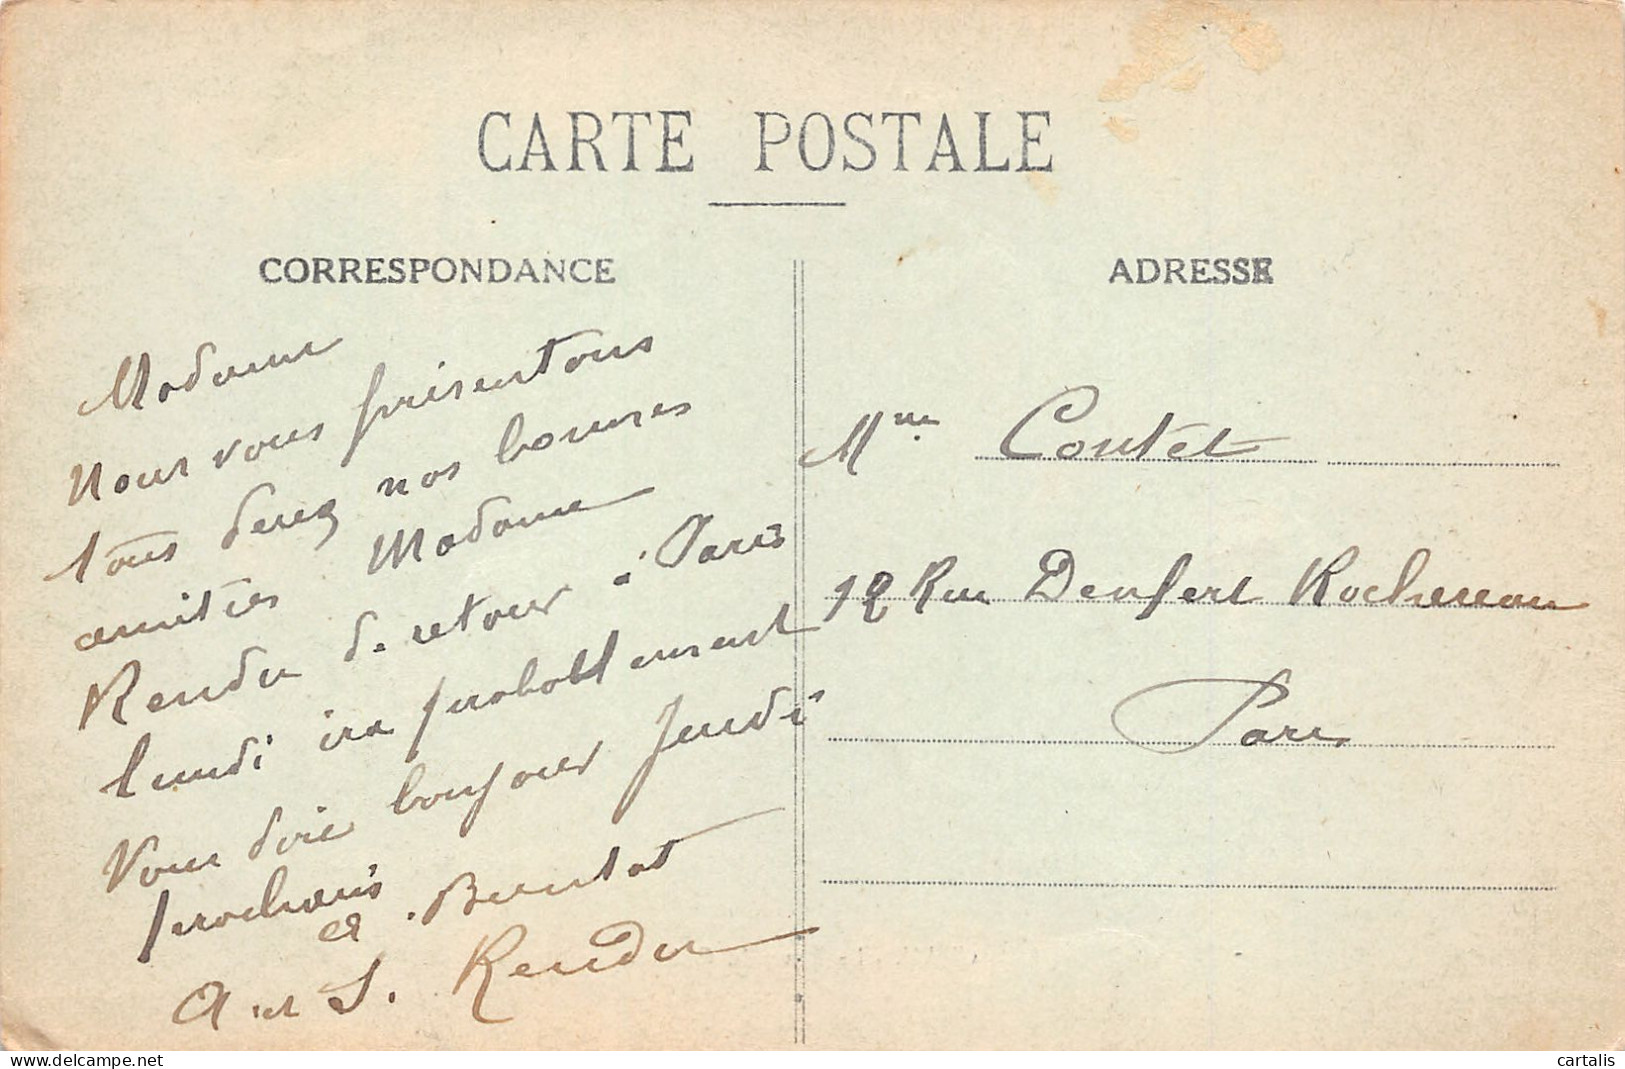 CARTE POSTALE
CORRESPONDANCE
ADRESSE
Madame
Nous vous présentons
tous deux nos bonnes
amitiés Madame
Rendu de retour à Paris
lundi ira probablement
Vous dire bonjour jeudi
prochain
A et S. Rendu
Mme Contet
12 Rue Denfert Rochereau
Paris
delcampe.net
cartalis